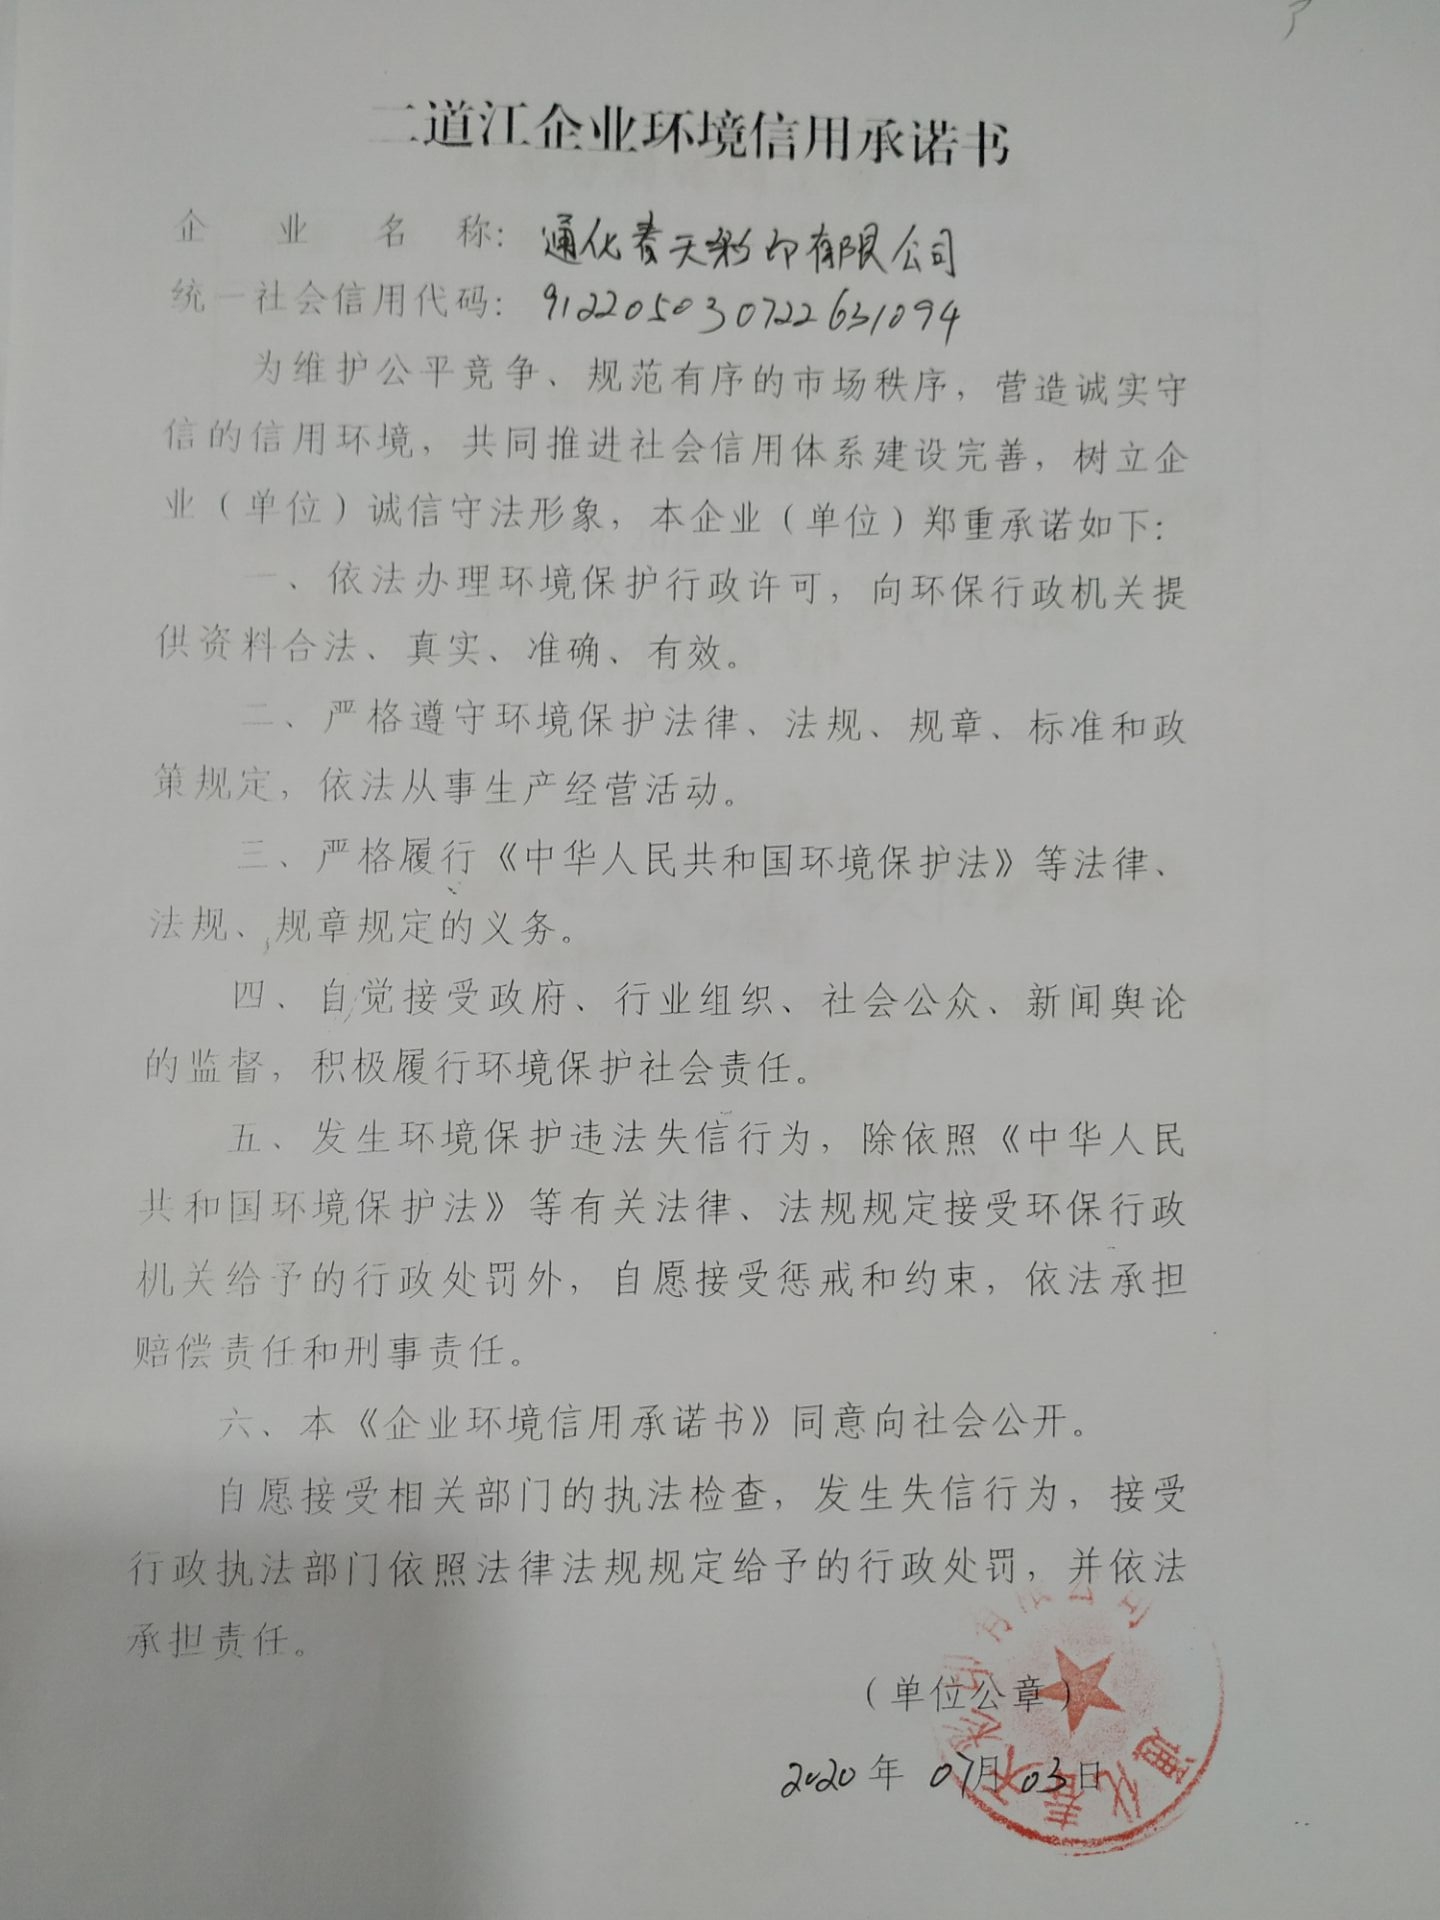 二道江企业环境信用承诺书
企业名称：通化春天彩印有限公司
统一社会信用代码：912205030722631094
为维护公平竞争、规范有序的市场秩序，营造诚实守
信的信用环境，共同推进社会信用体系建设完善，树立企
业（单位）诚信守法形象，本企业（单位）郑重承诺如下：
一、依法办理环境保护行政许可，向环保行政机关提
供资料合法、真实、准确、有效。
二、严格遵守环境保护法律、法规、规章、标准和政
策规定，依法从事生产经营活动。
三、严格履行《中华人民共和国环境保护法》等法律、
法规、规章规定的义务。
四、自觉接受政府、行业组织、社会公众、新闻舆论
的监督，积极履行环境保护社会责任。
五、发生环境保护违法失信行为，除依照《中华人民
共和国环境保护法》等有关法律、法规规定接受环保行政
机关给予的行政处罚外，自愿接受惩戒和约束，依法承担
赔偿责任和刑事责任。
六、本《企业环境信用承诺书》同意向社会公开。
自愿接受相关部门的执法检查，发生失信行为，接受
行政执法部门依照法律法规规定给予的行政处罚，并依法
承担责任。
（单位公章）
2020年07月03日
通化春天彩印有限公司